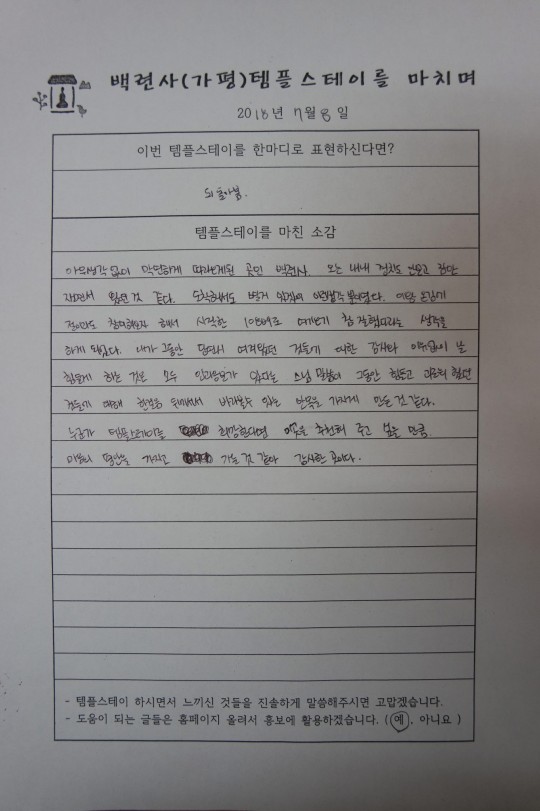 백련사(가평)템플스테이를 마치며
2018년 7월 8일
이번 템플스테이를 한마디로 표현하신다면?
되돌아봄.
템플스테이를 마친 소감
아무생각 없이 막연하게 따라오게된 곳인 백련사. 오는 내내 경치도 안보고 잠만
자면서 왔던 것 같다. 도착해서도 별거 있겠어 이런생각 뿐이었다. 이왕 온김에
절이라도 참여해보자 해서 시작한 108배로 여기오기 참 잘했다라는 생각을
하게 되었다. 내가 그동안 당연시 여겨왔던 것들에 대한 감사와 아쉬움이 날
힘들게 하는 것은 모두 인과응보가 있다는 스님 말씀이 그동안 힘들고 괴로워 했던
것들에 대해 한걸음 뒤에서 바라볼수 있는 안목을 가지게 만든 것 같다.
누군가 템플스테이를 희망한다면 이곳을 추천해 주고 싶을 만큼
마음의 평안을 가지고 가는 것 같아 감사한 곳이다.
- 템플스테이 하시면서 느끼신 것들을 진솔하게 말씀해주시면 고맙겠습니다.
- 도움이 되는 글들은 홈페이지 올려서 홍보에 활용하겠습니다. (예, 아니요 )